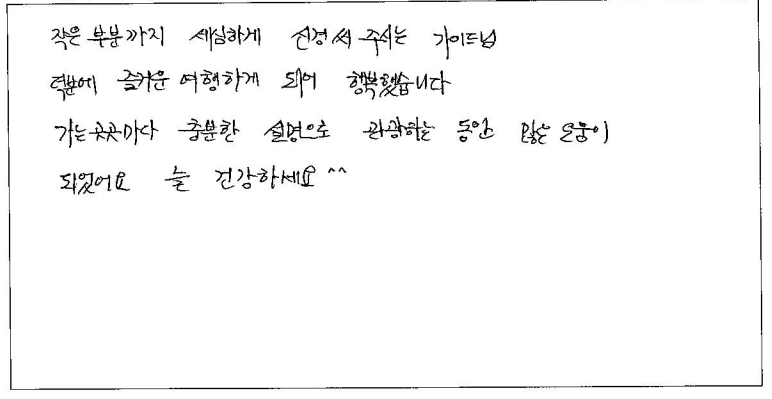 작은 부분까지 세심하게 신경 써 주시는 가이드님
덕분에 즐거운 여행하게 되어 행복했습니다
가는곳곳마다 충분한 설명으로 관광하는 동안 많은 도움이
되었어요 늘 건강하세요 ^^